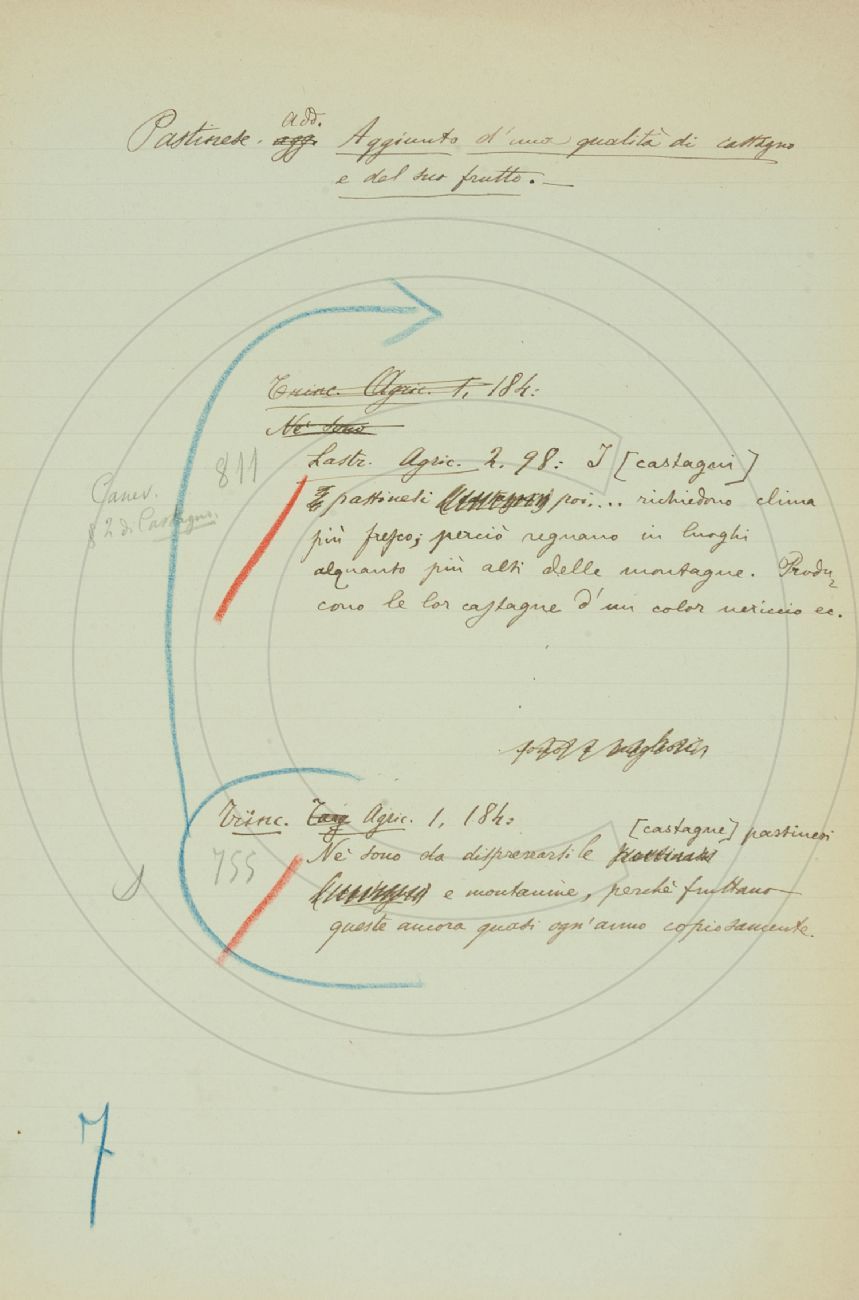 Pastinese. agg. add. Aggiunto d'una qualità di castagno
e del suo frutto.—
Trinc. Agric. 1, 184:
Ne sono
811
Lastr. Agric. 2. 98: I [castagni]
pastinesi poi.... richiedono clima
più fresco; perciò regnano in luoghi
alquanto più alti delle montagne. Produ=
cono le lor castagne d'un color nericcio ec.
§ 2 di Castagno.
Trinc. Agric. 1, 184:
[castagne] pastinesi
755
Nè sono da disprezzarsi le
e montanine, perchè fruttano
queste ancora quasi ogn'anno copiosamente.
7